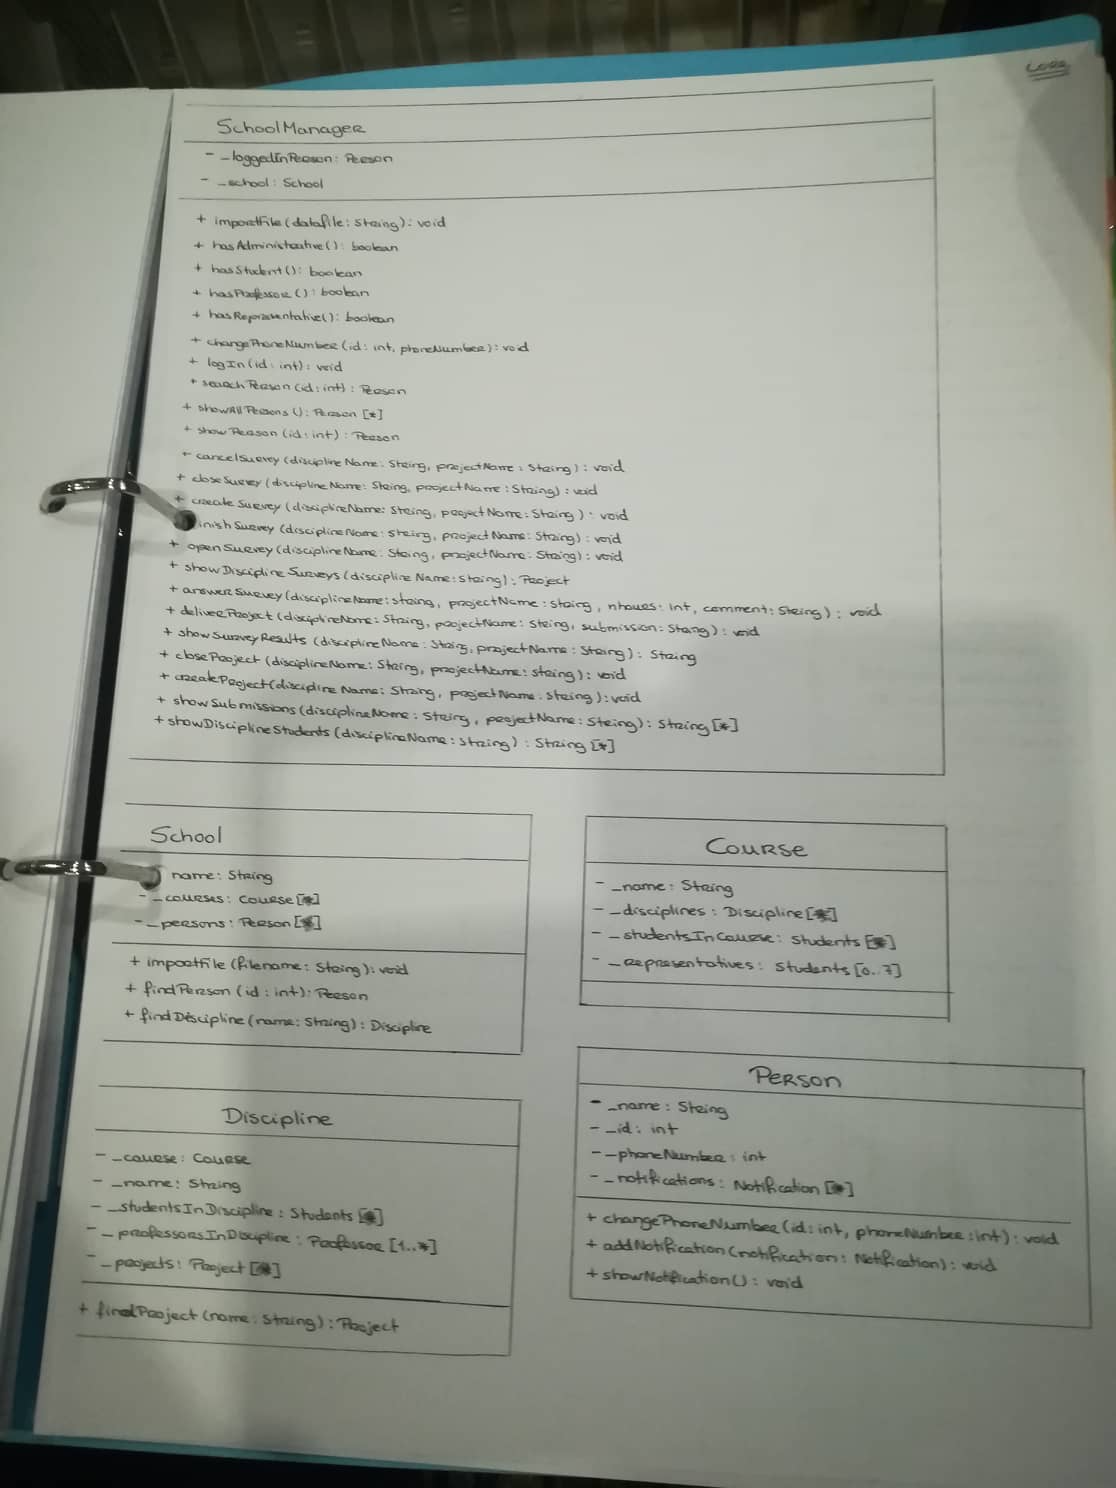 CORE
SchoolManager
- _loggedInPerson: Person
- _school: School
+ importFile (datafile: String): void
+ hasAdministrative(): boolean
+ hasStudent(): boolean
+ hasProfessor(): boolean
+ hasRepresentative(): boolean
+ changePhoneNumber (id: int, phoneNumber): void
+ logIn (id: int): void
+ searchPerson (id: int): Person
+ showAllPersons (): Person [*]
+ showPerson (id: int): Person
+ cancelSurvey (disciplineName: String, projectName: String): void
+ closeSurvey (disciplineName: String, projectName: String): void
+ createSurvey (disciplineName: String, projectName: String): void
inishSurvey (disciplineName: String, projectName: String): void
+ openSurvey (disciplineName: String, projectName: String): void
+ showDisciplineSurveys (disciplineName: String): Project
+ answerSurvey (disciplineName: String, projectName: String, nhours: int, comment: String): void
+ deliverProject (disciplineName: String, projectName: String, submission: String): void
+ showSurveyResults (disciplineName: String, projectName: String): String
+ closeProject (disciplineName: String, projectName: String): void
+ createProject (disciplineName: String, projectName: String): void
+ showSubmissions (disciplineName: String, projectName: String): String [*]
+ showDisciplineStudents (disciplineName: String): String [*]
School
name: String
- _courses: Course [*]
- _persons: Person [*]
+ importFile (filename: String): void
+ findPerson (id: int): Person
+ findDiscipline (name: String): Discipline
Course
- _name: String
- _disciplines: Discipline [*]
- _studentsInCourse: Students [*]
- _representatives: Students [0..7]
Discipline
- _course: Course
- _name: String
- _studentsInDiscipline: Students [*]
- _professorsInDiscipline: Professor [1..*]
- _projects: Project [*]
+ findProject (name: String): Project
Person
- _name: String
- _id: int
- _phoneNumber: int
- _notifications: Notification [*]
+ changePhoneNumber (id: int, phoneNumber: int): void
+ addNotification (notification: Notification): void
+ showNotification(): void